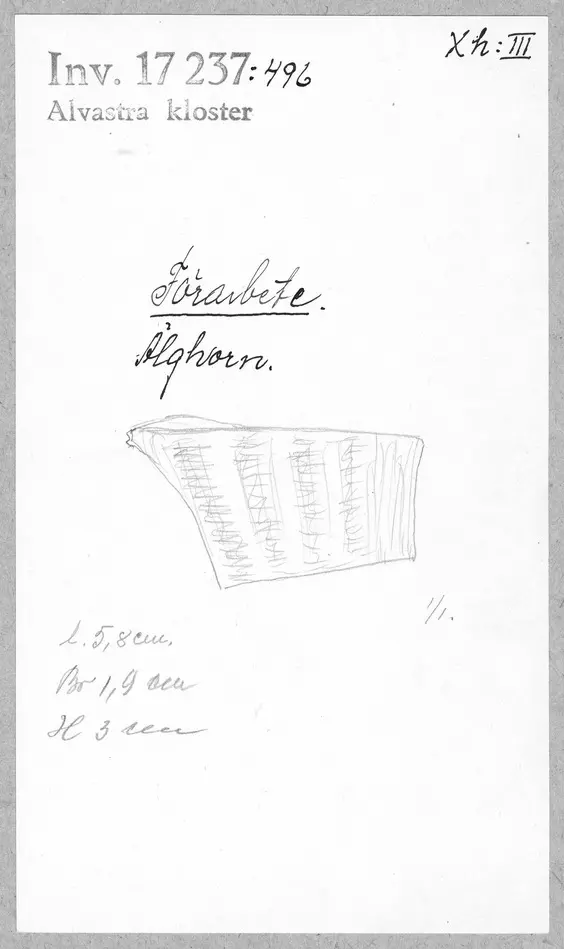 Xh: III
Inv. 17 237: 496
Alvastra kloster
Förarbete.
Älghorn.
1/1.
L. 5,8 cm.
Br 1,9 cm
H 3 cm